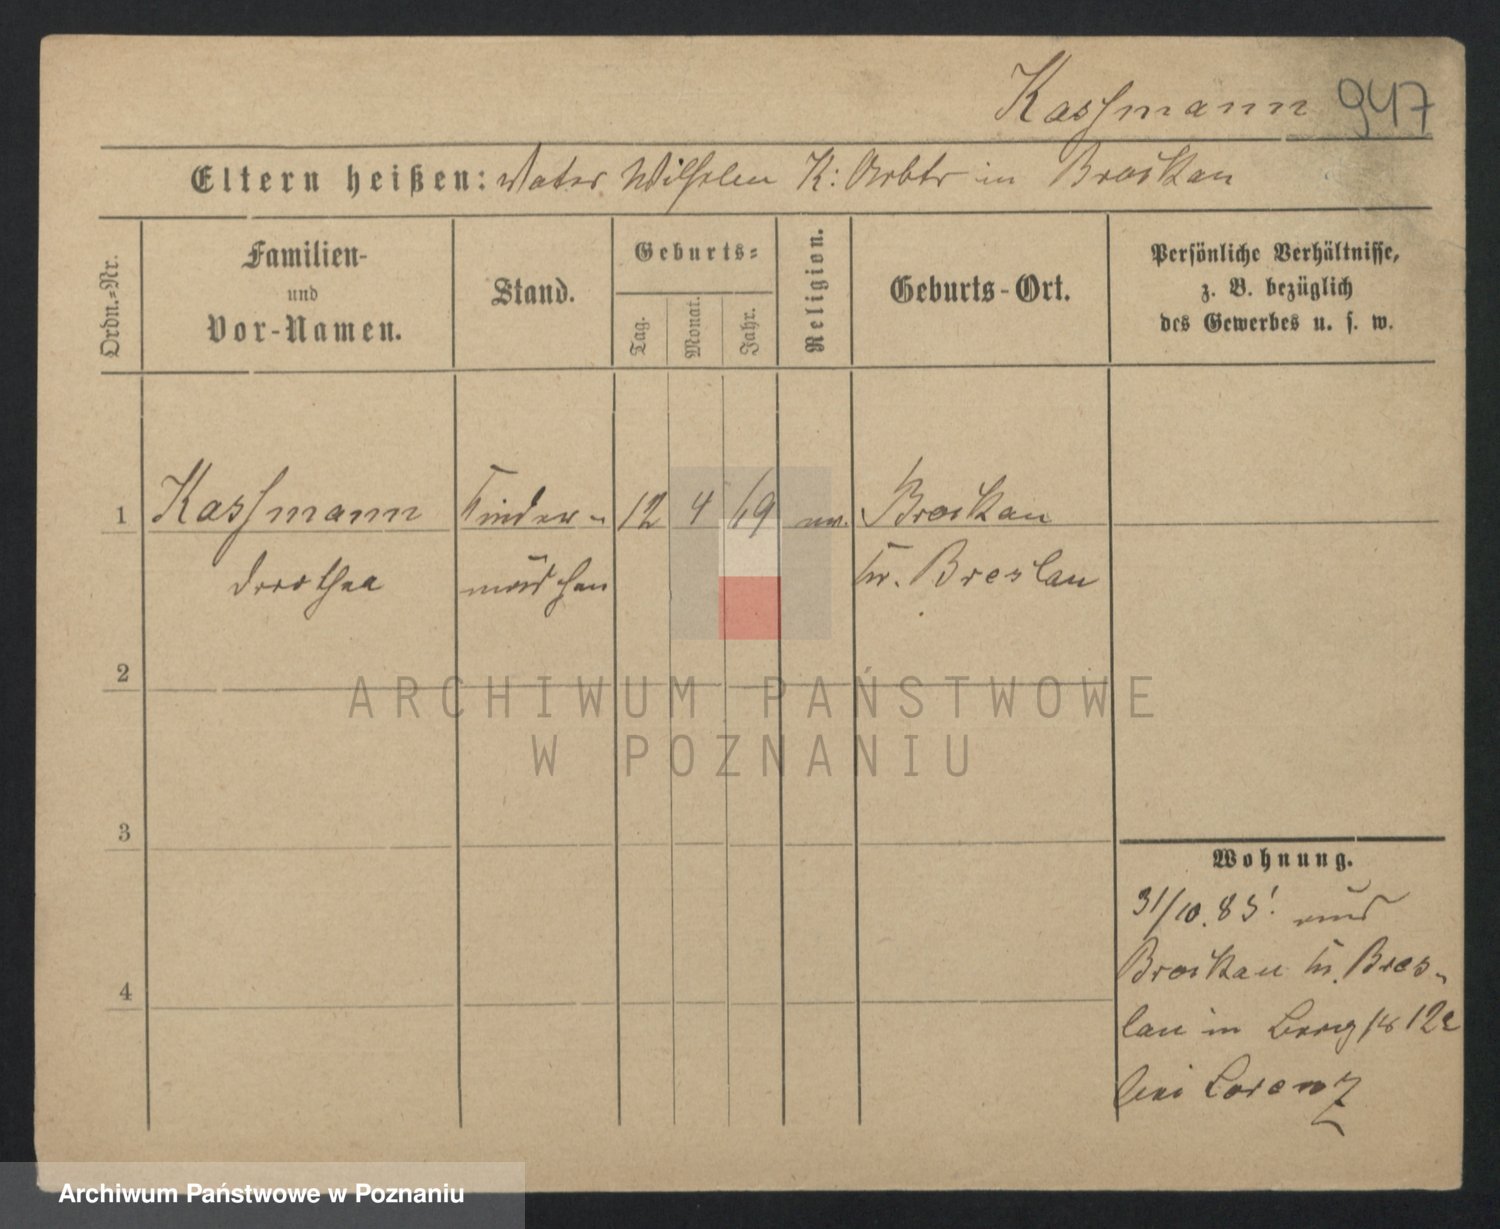 Kassmann 947
Eltern heißen: Vater Wilhelm K: Arbtr in Brockau
Ordn.=Nr.
Familien-
und
Vor-Namen.
Stand.
Geburts=
Tag.
Monat.
Jahr.
Religion.
Geburts-Ort.
Persönliche Verhältnisse,
z. B. bezüglich
des Gewerbes u. s. w.
1 Kassmann Kinder- 12 4 69 ev. Brockau
Dorothea mädchen Kr. Breslau
2
3
4
Wohnung.
31/10. 85! aus
Brockau Kr. Bres-
lau in Bergstr 12
bei Lorenz
ARCHIWUM PAŃSTWOWE
W POZNANIU
Archiwum Państwowe w Poznaniu